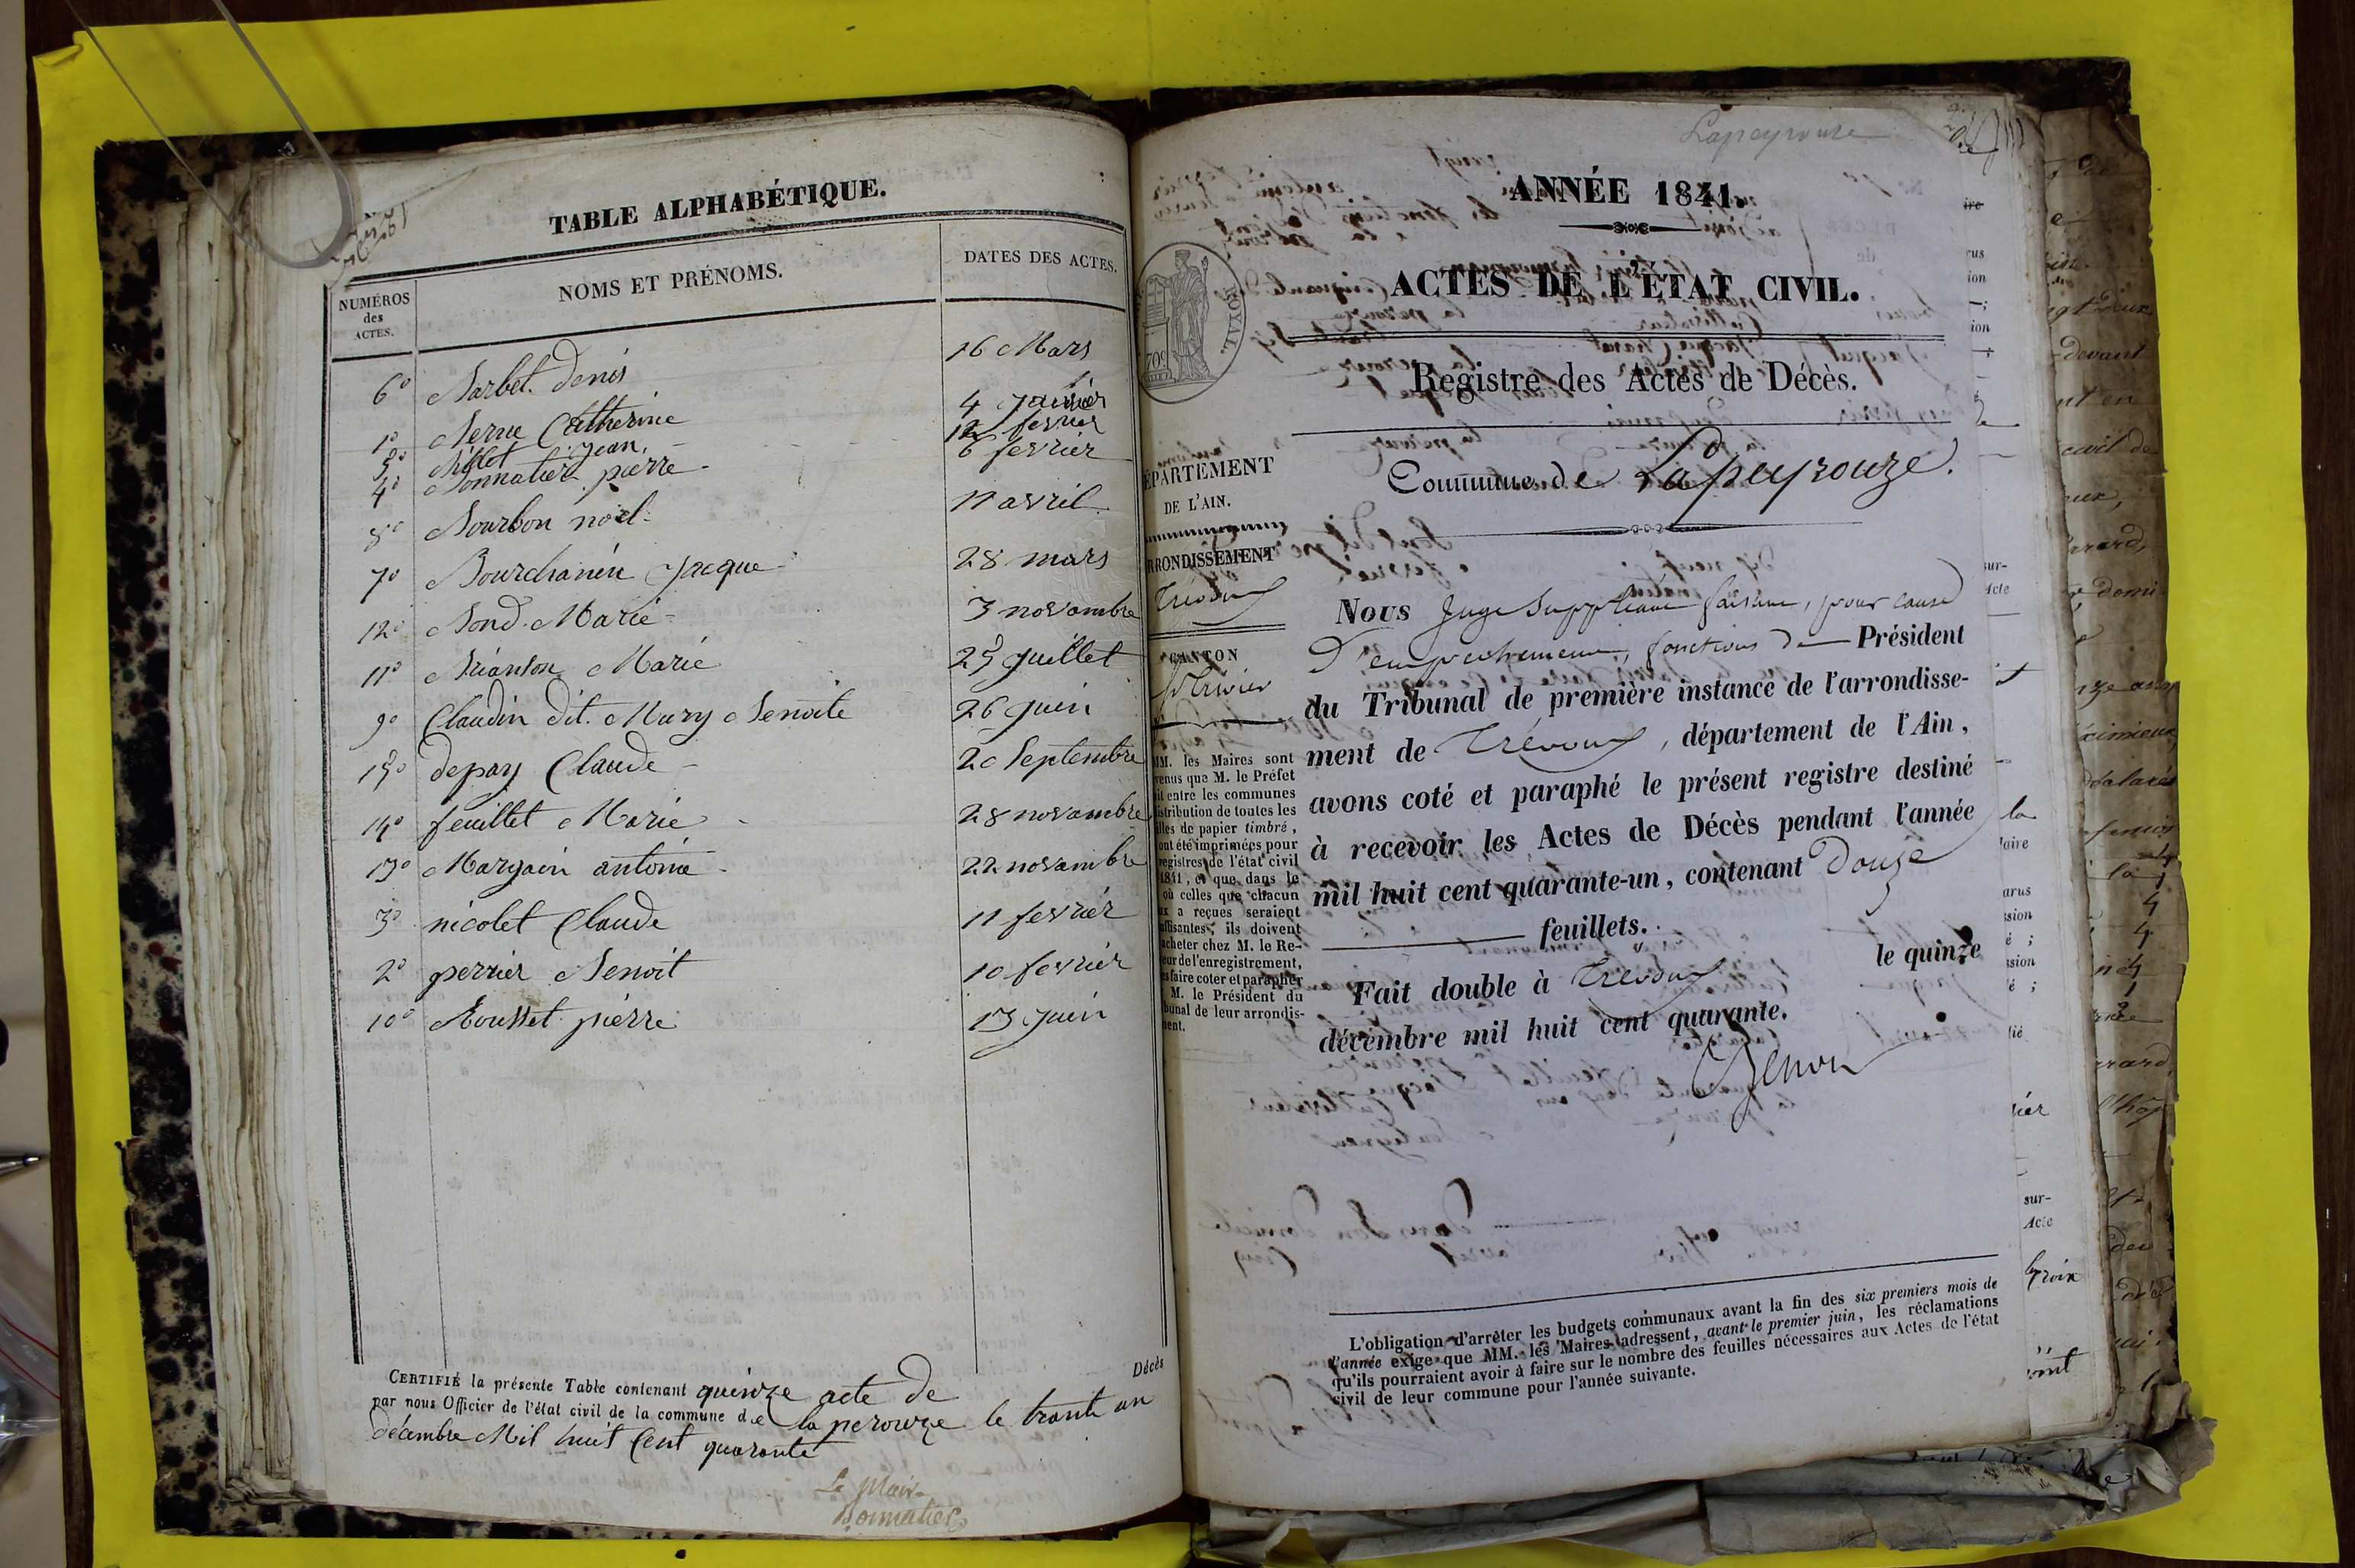 TABLE ALPHABÉTIQUE.
NUMÉROS des ACTES.
NOMS ET PRÉNOMS.
DATES DES ACTES.
6° Barbet denis 16 Mars
1° Berne Catherine 4 janvier
5° Billet jean 12 fevrier
4° Bonnatier pierre 6 fevrier
8° Bourbon noël 11 avril
7° Bourchanin jacque 28 mars
12° Bond Marie 3 novambre
11° Brianson Marie 25 juillet
9° Claudin dit Mury Benoite 26 juin
15° depay Claude 20 Septembre
14° feuillet Marie 28 novambre
13° Margain antoine 22 novambre
3° nicolet Claude 11 fevrier
2° perrier Benoit 10 fevrier
10° Rousset pierre 13 juin
CERTIFIÉ la présente Table contenant quinze acte de Décès
par nous Officier de l'état civil de la commune de la perouze le trante un
décembre Mil huit Cent quarante
Le Maire
Bonnatier
Lapeyrouse
ANNÉE 1841.
ACTES DE L'ÉTAT CIVIL.
ROYAL.
Registre des Actes de Décès.
Commune de Lapeyrouze.
ÉPARTEMENT
DE L'AIN.
RRONDISSEMENT
Trévoux
CANTON
MM. les Maires sont
venus que M. le Préfet
it entre les communes
istribution de toutes les
illes de papier timbré,
ont été imprimées pour
registres de l'état civil
1841, et que dans le
où celles que chacun
ux a reçues seraient
uffisantes, ils doivent
acheter chez M. le Re-
eur de l'enregistrement,
es faire coter et parapher
M. le Président du
bunal de leur arrondis-
ment.
Nous Juge Suppléant faisant, pour cause
D'empechement, fonctions de Président
du Tribunal de première instance de l'arrondisse-
ment de Trévoux, département de l'Ain,
avons coté et paraphé le présent registre destiné
à recevoir les Actes de Décès pendant l'année
mil huit cent quarante-un, contenant Douze
feuillets.
Fait double à Trevoux le quinze
décembre mil huit cent quarante.
L'obligation d'arrêter les budgets communaux avant la fin des six premiers mois de
l'année exige que MM. les Maires adressent, avant le premier juin, les réclamations
qu'ils pourraient avoir à faire sur le nombre des feuilles nécessaires aux Actes de l'état
civil de leur commune pour l'année suivante.